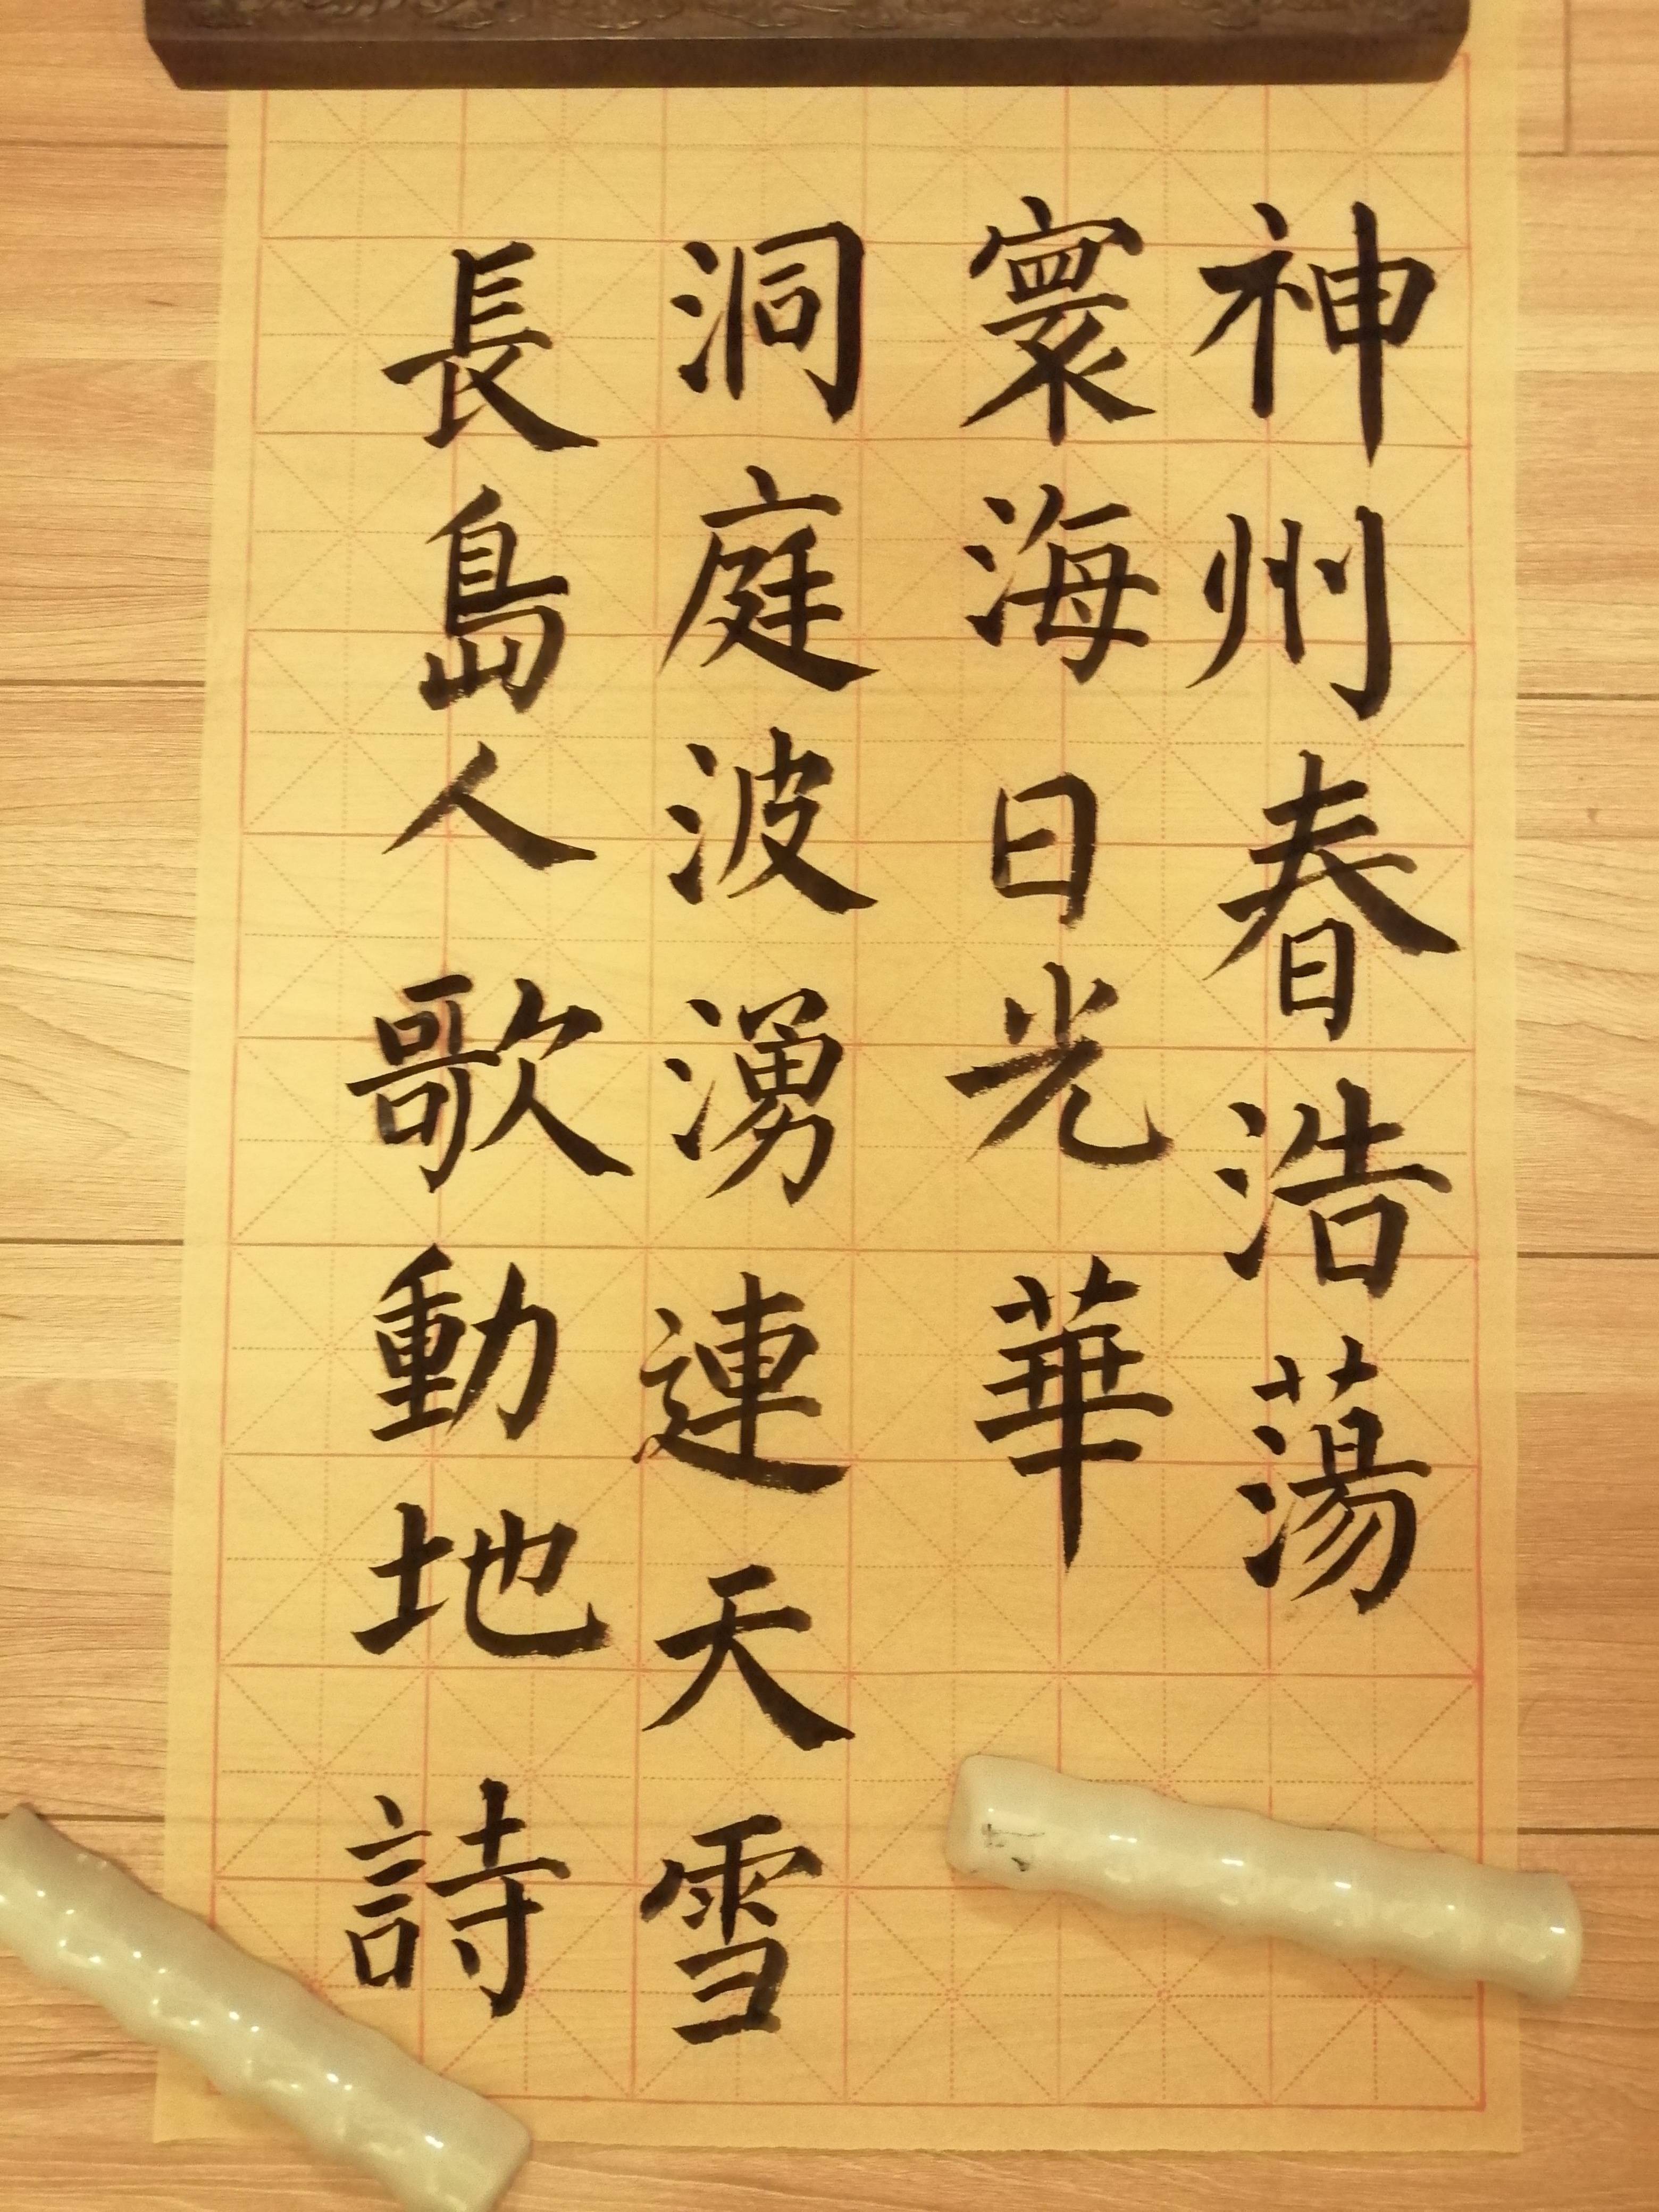 神州春浩蕩
寰海日光華
洞庭波湧連天雪
長島人歌動地詩